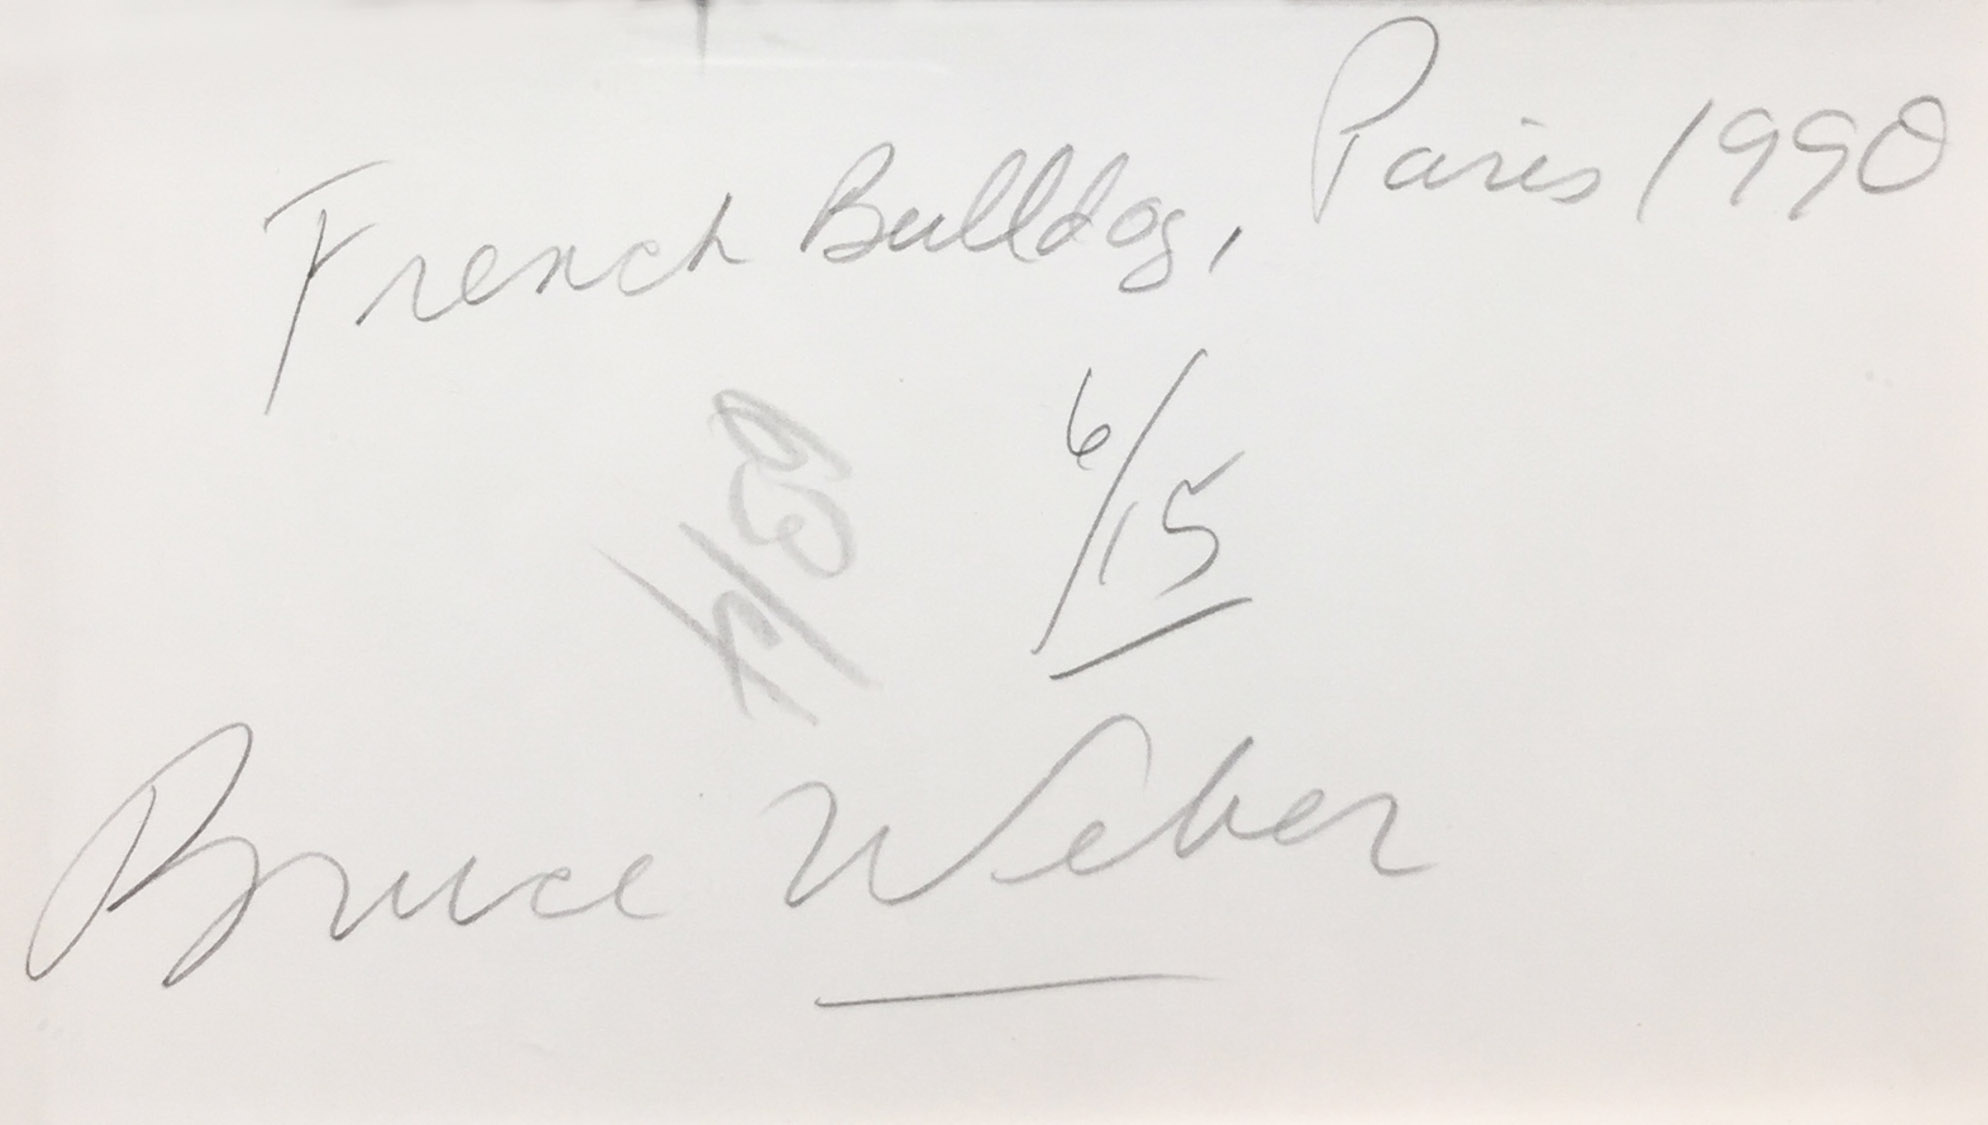 French Bulldog, Paris 1990
6/15
Bruce Weber